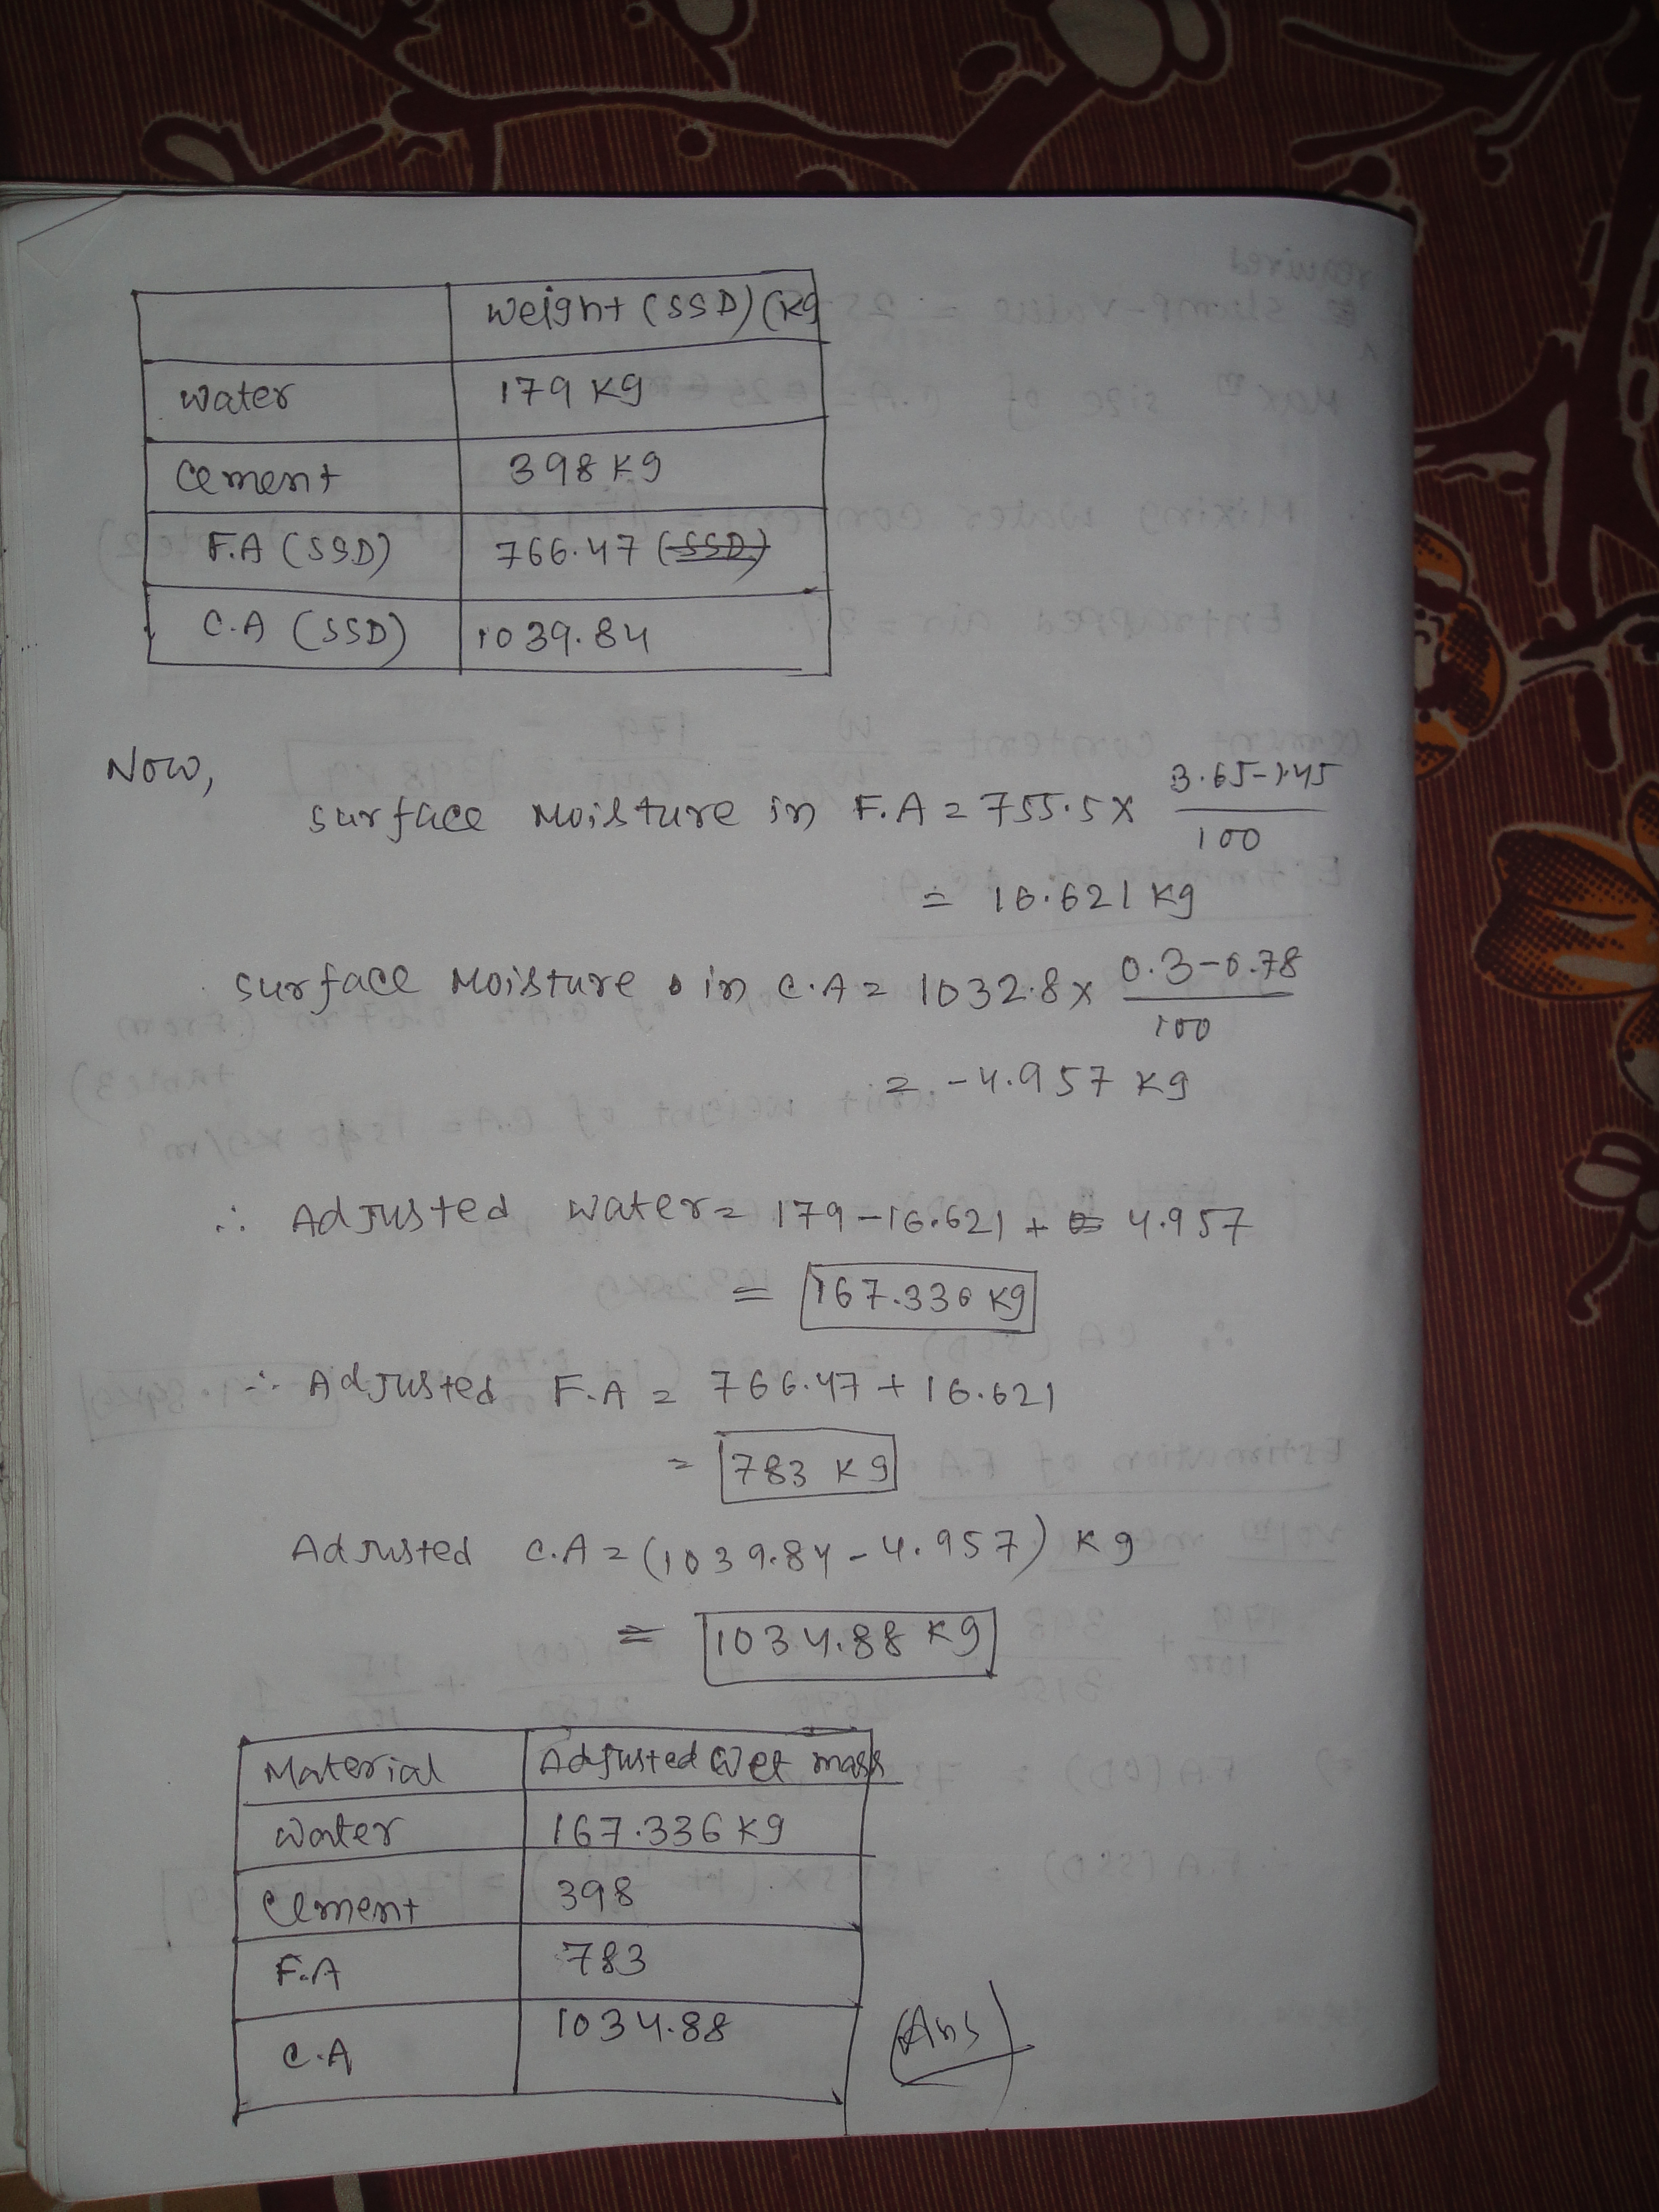 Weight (SSD) (Kg
Water 179 Kg
Cement 398 Kg
F.A (SSD) 766.47 (SSD)
C.A (SSD) 1039.84
Now,
Surface Moisture in F.A = 755.5 x 3.65-1.45
100
= 16.621 Kg
Surface Moisture in C.A = 1032.8 x 0.3-0.78
100
= -4.957 Kg
∴ Adjusted Water = 179-16.621 + 4.957
= 167.336 Kg
∴ Adjusted F.A = 766.47 + 16.621
= 783 Kg
Adjusted C.A = (1039.84 - 4.957) Kg
= 1034.88 Kg
Material Adjusted Wet mass
Water 167.336 Kg
Cement 398
F.A 783
C.A 1034.88
(Ans)